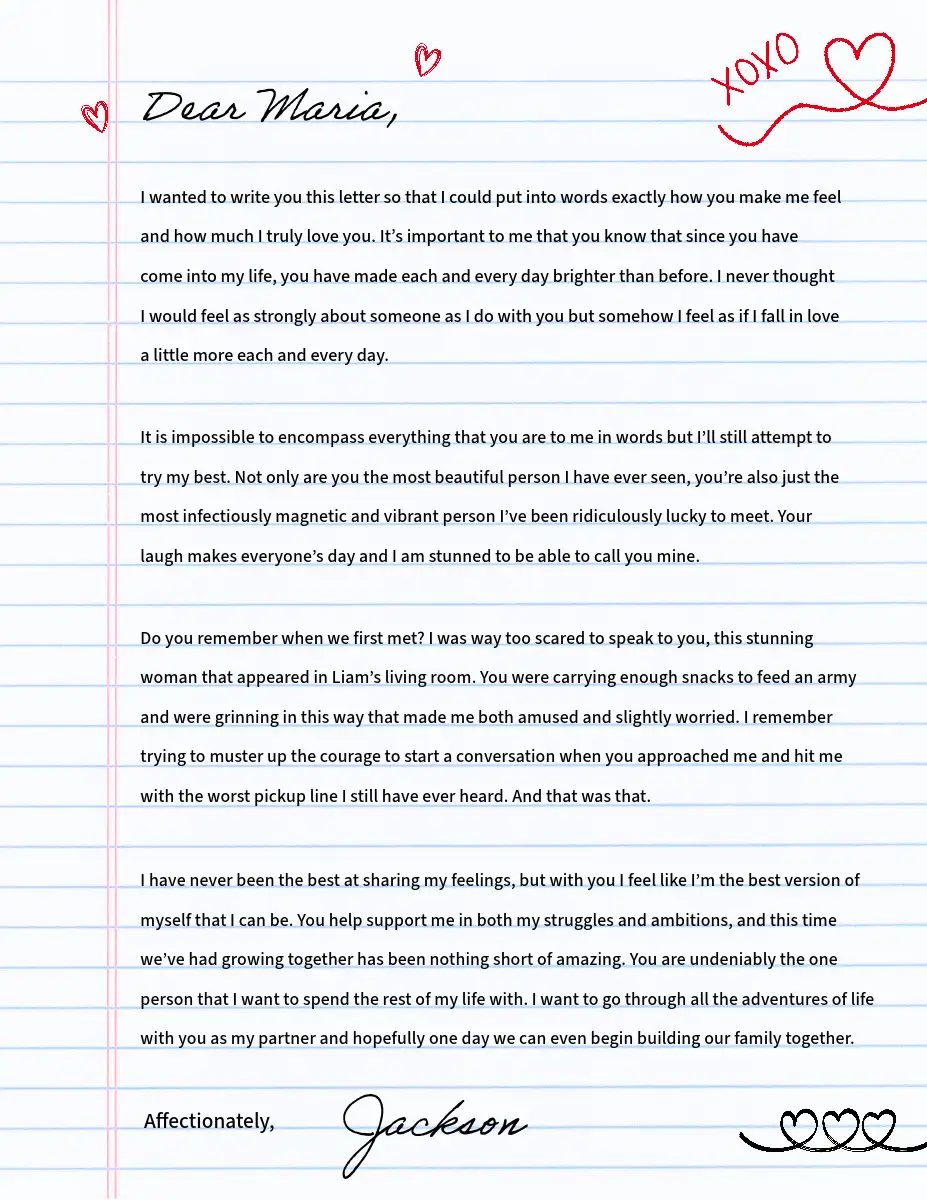 XOXO
Dear Maria,
I wanted to write you this letter so that I could put into words exactly how you make me feel
and how much I truly love you. It’s important to me that you know that since you have
come into my life, you have made each and every day brighter than before. I never thought
I would feel as strongly about someone as I do with you but somehow I feel as if I fall in love
a little more each and every day.
It is impossible to encompass everything that you are to me in words but I’ll still attempt to
try my best. Not only are you the most beautiful person I have ever seen, you’re also just the
most infectiously magnetic and vibrant person I’ve been ridiculously lucky to meet. Your
laugh makes everyone’s day and I am stunned to be able to call you mine.
Do you remember when we first met? I was way too scared to speak to you, this stunning
woman that appeared in Liam’s living room. You were carrying enough snacks to feed an army
and were grinning in this way that made me both amused and slightly worried. I remember
trying to muster up the courage to start a conversation when you approached me and hit me
with the worst pickup line I still have ever heard. And that was that.
I have never been the best at sharing my feelings, but with you I feel like I’m the best version of
myself that I can be. You help support me in both my struggles and ambitions, and this time
we’ve had growing together has been nothing short of amazing. You are undeniably the one
person that I want to spend the rest of my life with. I want to go through all the adventures of life
with you as my partner and hopefully one day we can even begin building our family together.
Affectionately, Jackson